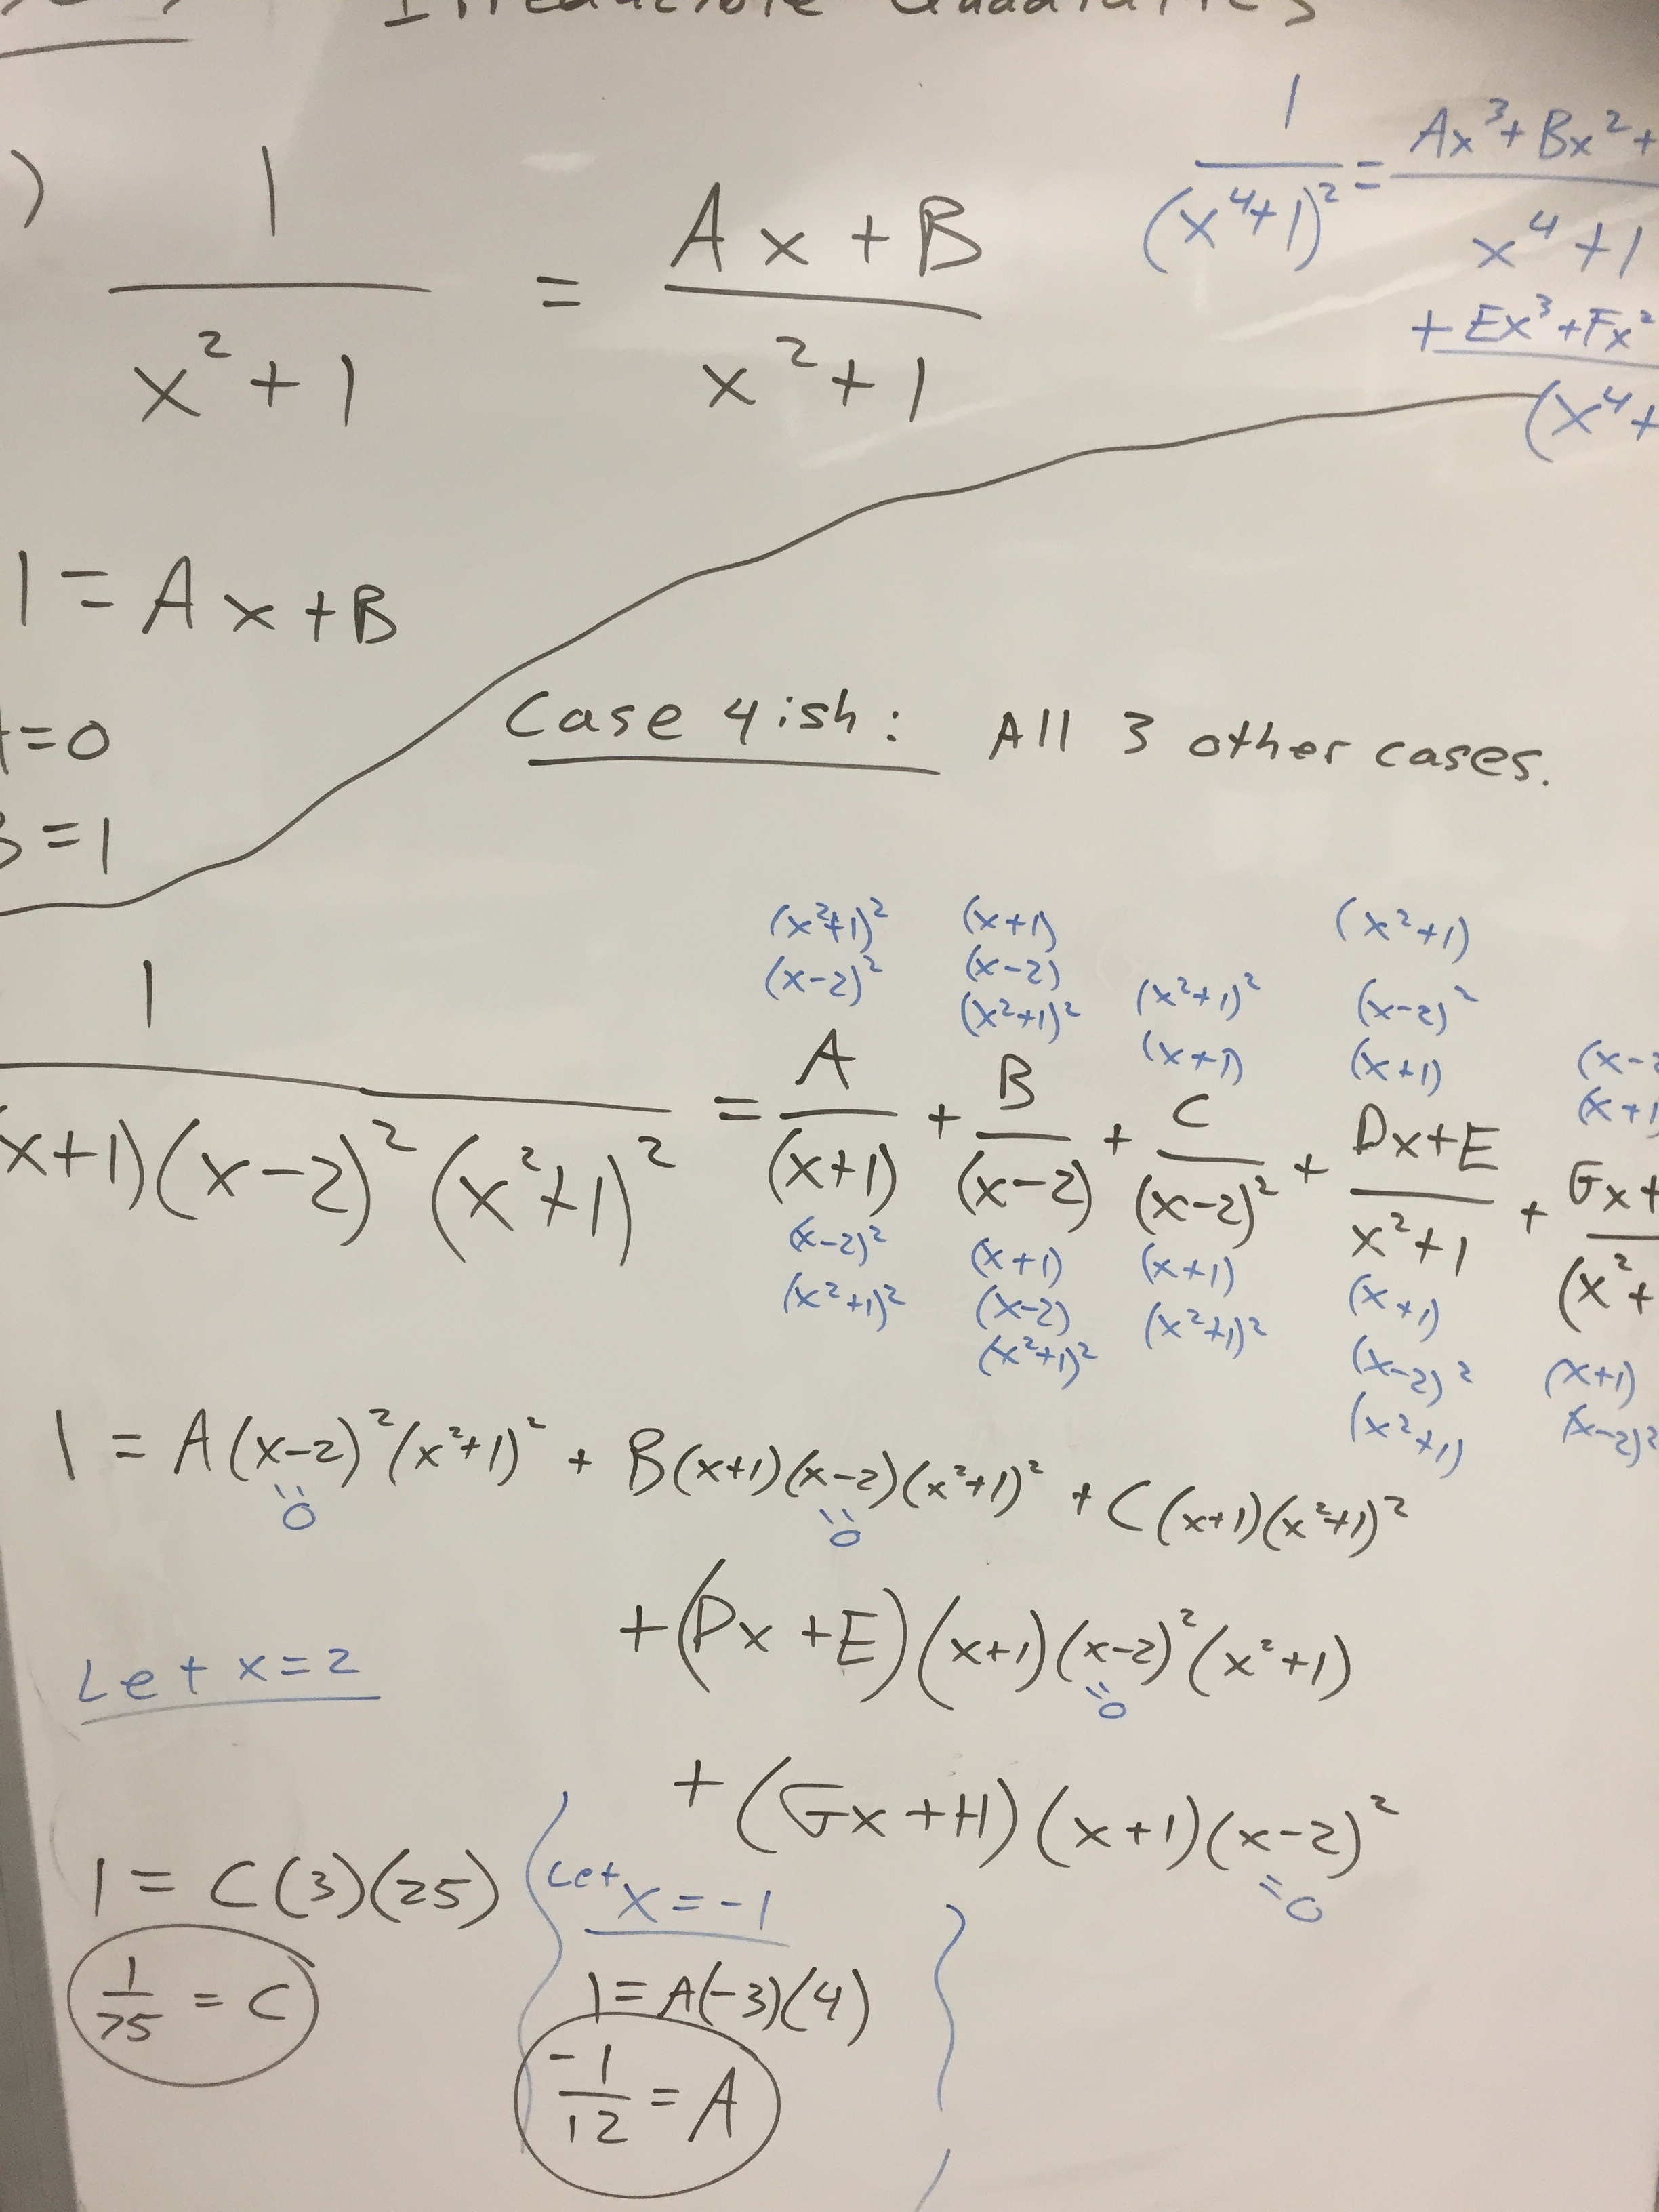 Irreducible Quadratics
) 1 / (x² + 1) = (Ax + B) / (x² + 1)
1 / (x⁴+1)² = Ax³ + Bx² + / x⁴ + 1
+ Ex³ + Fx² / (x⁴ +
1 = Ax + B
= 0
B = 1
Case 4ish: All 3 other cases.
(x²+1)² (x+1) (x²+1)
(x-2)² (x-2) (x²+1)² (x-2)²
(x²+1)² (x+1) (x+1) (x-2
(x+1)
1 / (x+1)(x-2)²(x²+1)² = A / (x+1) + B / (x-2) + C / (x-2)² + Dx+E / x²+1 + Gx+ / (x²+
(x-2)² (x+1) (x+1) (x+1)
(x²+1)² (x-2) (x²+1)² (x-2)² (x+1)
(x²+1)² (x²+1) (x-2)²
1 = A(x-2)²(x²+1)² + B(x+1)(x-2)(x²+1)² + C(x+1)(x²+1)²
=0 =0
+ (Dx + E)(x+1)(x-2)²(x²+1)
=0
Let x = 2
+ (Gx + H)(x+1)(x-2)²
=0
1 = C(3)(25)
1/75 = C
Let x = -1
1 = A(-3)(4)
-1/12 = A